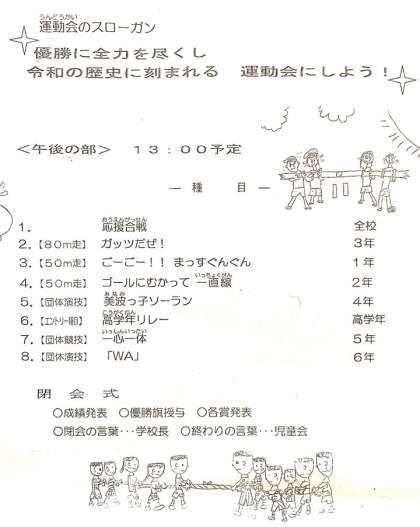 うんどうかい
運動会のスローガン
優勝に全力を尽くし
令和の歴史に刻まれる　運動会にしよう！
＜午後の部＞　１３：００予定
― 種　目 ―
おうえんがっせん
1. 応援合戦　全校
2.【80m走】ガッツだぜ！　3年
3.【50m走】ごーごー！！まっすぐんぐん　1年
いっちょくせん
4.【50m走】ゴールにむかって 一直線　2年
みなみ
5.【団体演技】美波っ子ソーラン　4年
こうがくねん
6.【エントリー種目】高学年リレー　高学年
いっしんいったい
7.【団体競技】一心一体　5年
8.【団体演技】「WA」　6年
閉会式
○成績発表　○優勝旗授与　○各賞発表
○閉会の言葉･･･学校長　○終わりの言葉･･･児童会